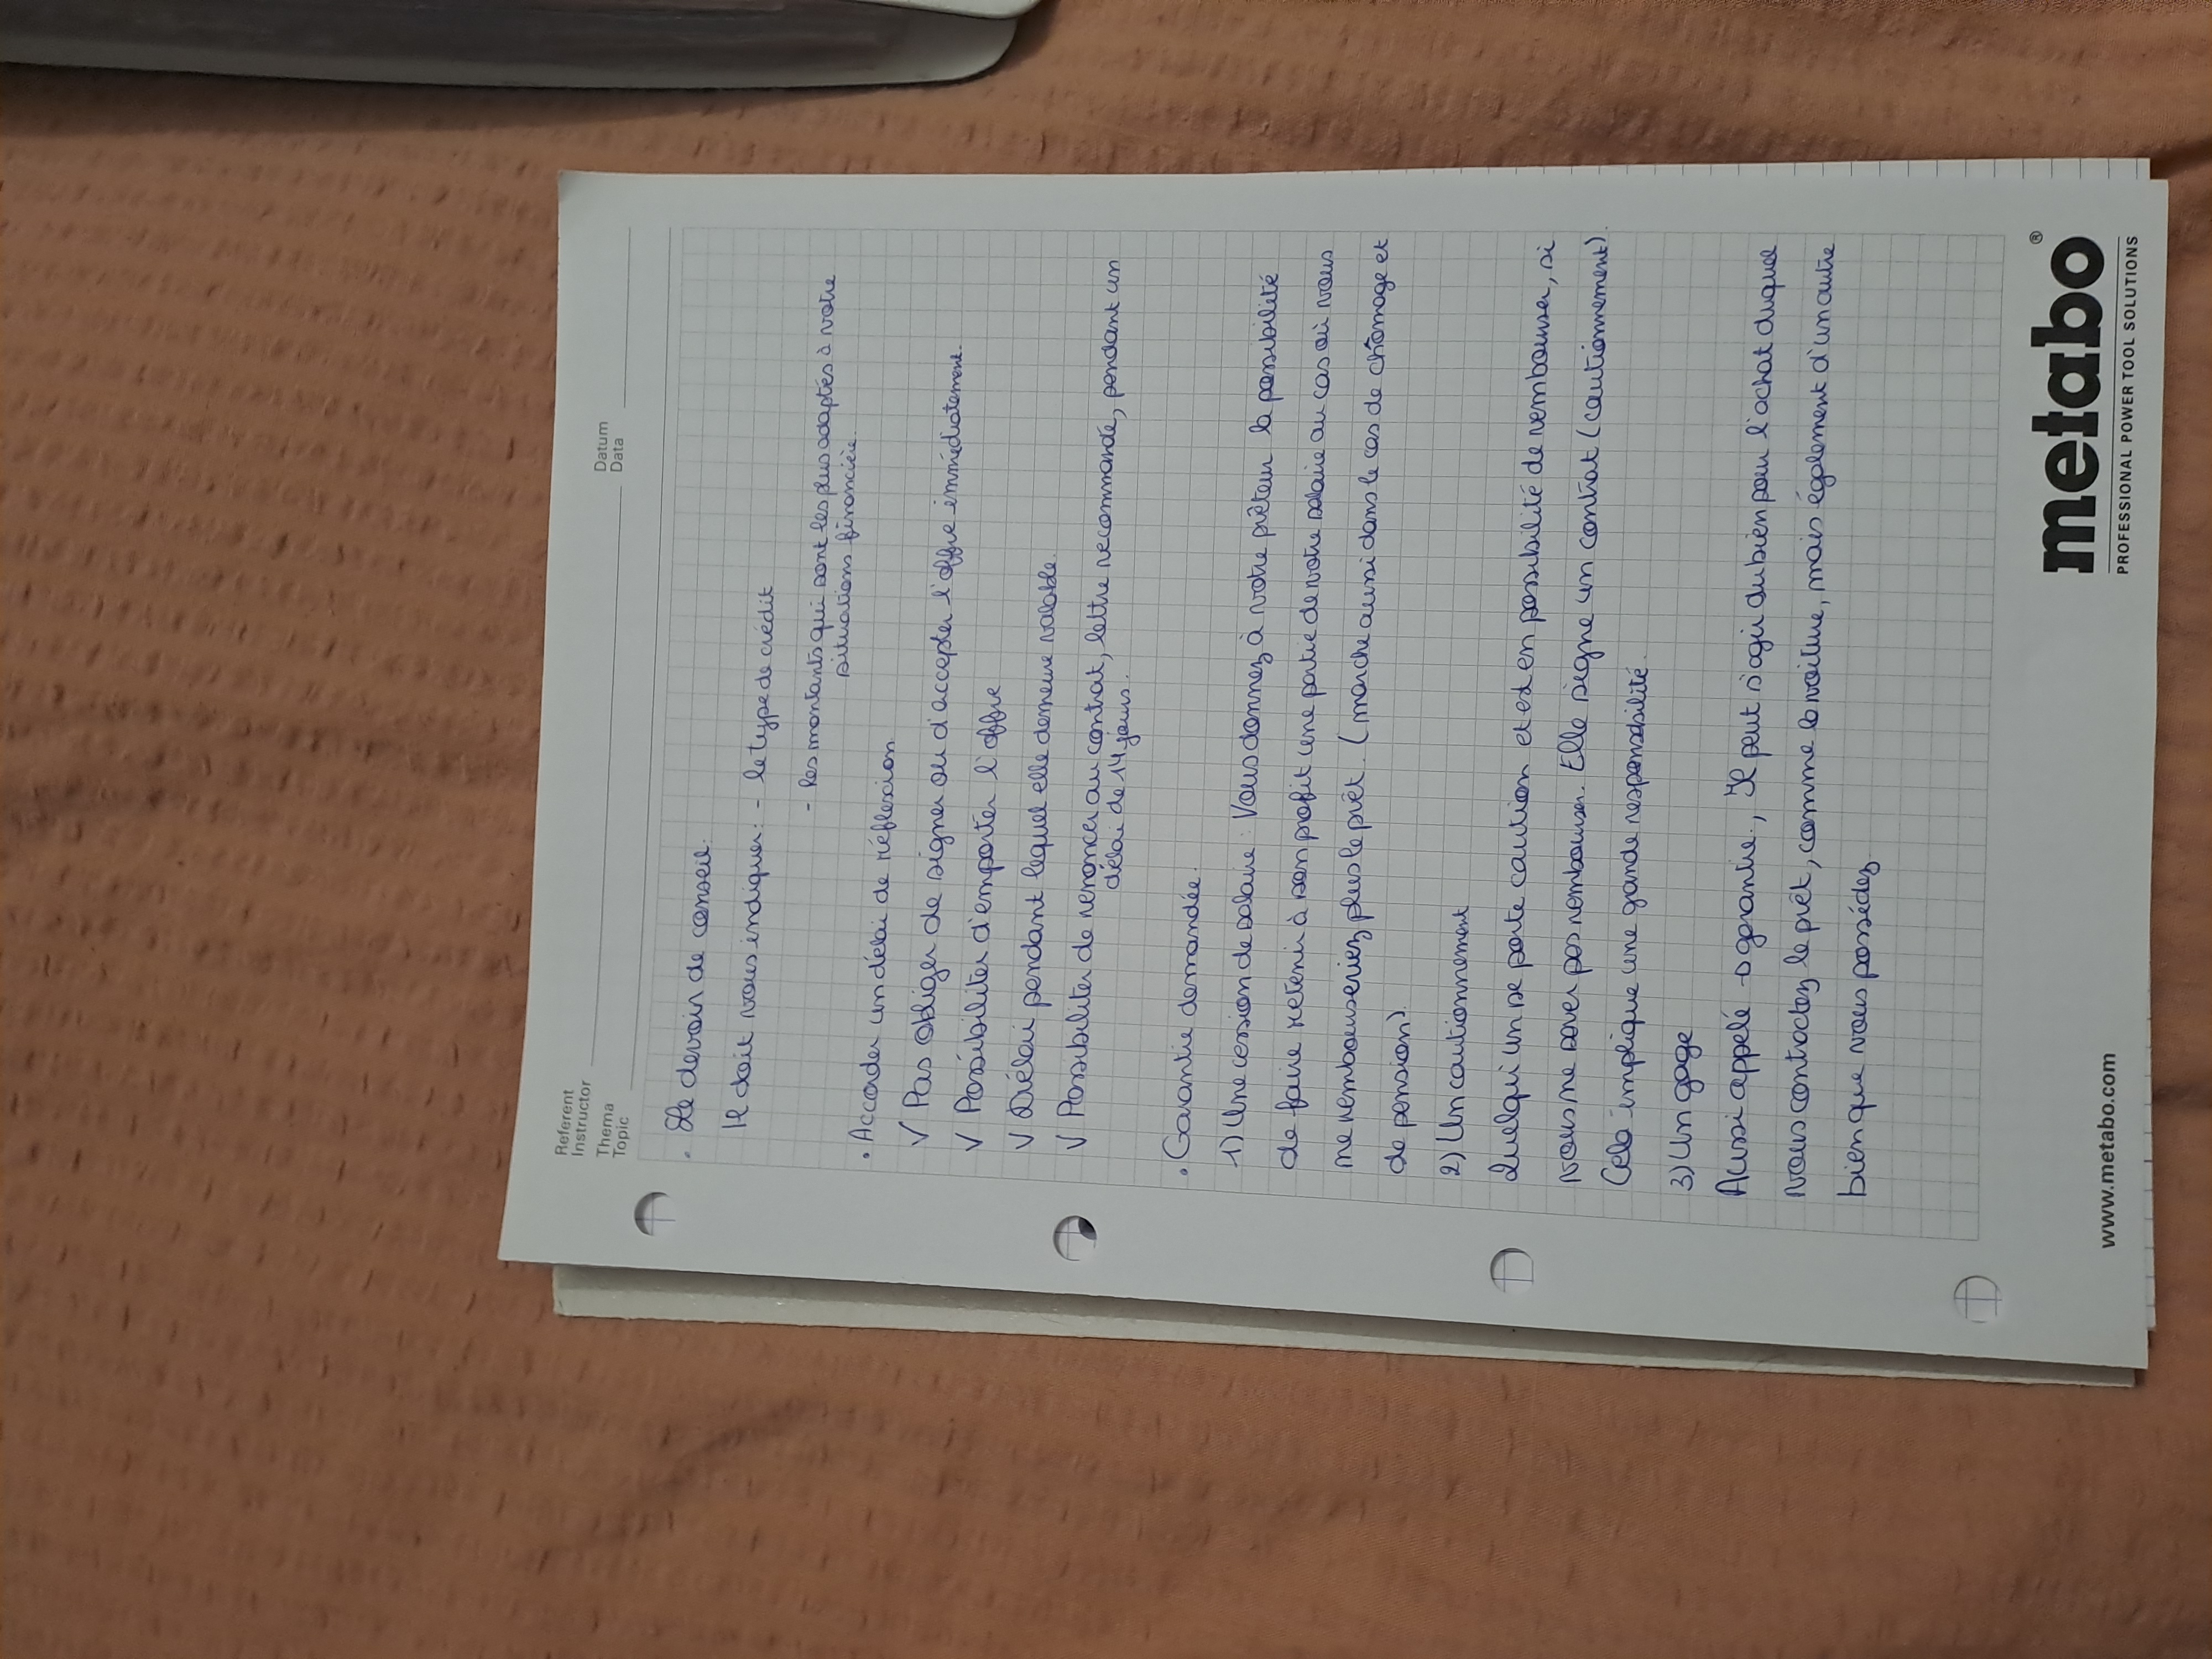 Referent
Instructor
Thema
Topic
Datum
Data
• Le devoir de conseil.
Il doit vous indiquer : - le type de crédit
- les montants qui sont les plus adaptés à votre
situations financière.
• Accorder un délai de réflexion
√ Pas obliger de signer ou d'accepter l'offre immédiatement.
√ Possibiliter d'emporter l'offre
√ Délai pendant lequel elle demeure valable.
√ Possibiliter de renoncer au contrat, lettre recommandé, pendant un
délai de 14 jours.
• Garantie demandée.
1) Une cession de salaire : Vous donnez à votre prêteur la possibilité
de faire retenir à son profit une partie de votre salaire au cas où vous
ne rembourseriez plus le prêt. (marche aussi dans le cas de chômage et
de pension).
2) Un cautionnement
Quelqu'un se porte caution et est en possibilité de rembourser, si
vous ne savez pas rembourser. Elle signe un contrat (cautionnement).
Cela implique une gande responsabilité.
3) Un gage
Aussi appelé → garantie., Il peut s'agir du bien pour l'achat duquel
vous contractez le prêt, comme la voiture, mais également d'un autre
bien que vous possédez
www.metabo.com
metabo®
PROFESSIONAL POWER TOOL SOLUTIONS